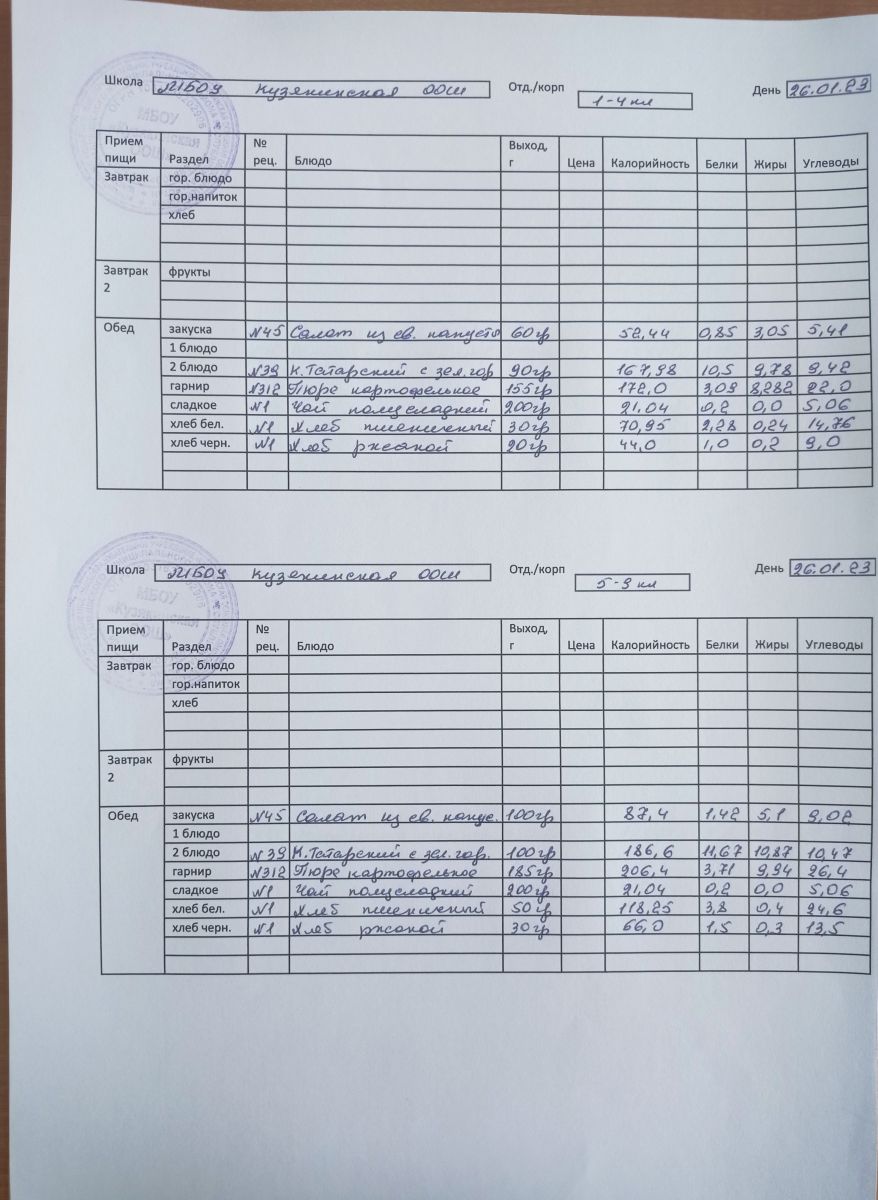 Школа МБОУ Кузякинская ООШ Отд./корп 1-4 кл День 26.01.23
Прием пищи Раздел № рец. Блюдо Выход, г Цена Калорийность Белки Жиры Углеводы
Завтрак гор. блюдо
гор.напиток
хлеб
Завтрак 2 фрукты
Обед закуска №45 Салат из св. капусты 60гр 52,44 0,85 3,05 5,41
1 блюдо
2 блюдо №39 К.Татарский с зел.гор 90гр 167,98 10,5 9,78 9,42
гарнир №312 Пюре картофельное 155гр 172,0 3,09 8,282 22,0
сладкое №1 Чай полусладкий 200гр 21,04 0,2 0,0 5,06
хлеб бел. №1 Хлеб пшеничный 30гр 70,95 2,28 0,24 14,76
хлеб черн. №1 Хлеб ржаной 20гр 44,0 1,0 0,2 9,0
Школа МБОУ Кузякинская ООШ Отд./корп 5-9 кл День 26.01.23
Прием пищи Раздел № рец. Блюдо Выход, г Цена Калорийность Белки Жиры Углеводы
Завтрак гор. блюдо
гор.напиток
хлеб
Завтрак 2 фрукты
Обед закуска №45 Салат из св. капус. 100гр 87,4 1,42 5,1 9,02
1 блюдо
2 блюдо №39 К.Татарский с зел.гор. 100гр 186,6 11,67 10,87 10,47
гарнир №312 Пюре картофельное 185гр 206,4 3,71 9,94 26,4
сладкое №1 Чай полусладкий 200гр 21,04 0,2 0,0 5,06
хлеб бел. №1 Хлеб пшеничный 50гр 118,25 3,8 0,4 24,6
хлеб черн. №1 Хлеб ржаной 30гр 66,0 1,5 0,3 13,5
МБОУ
«Кузякинская
ООШ»